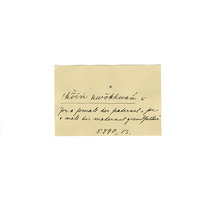 !kõïn kwökkwañ =
for a female her paternal, for
a male his maternal grandfather
5790, 13.